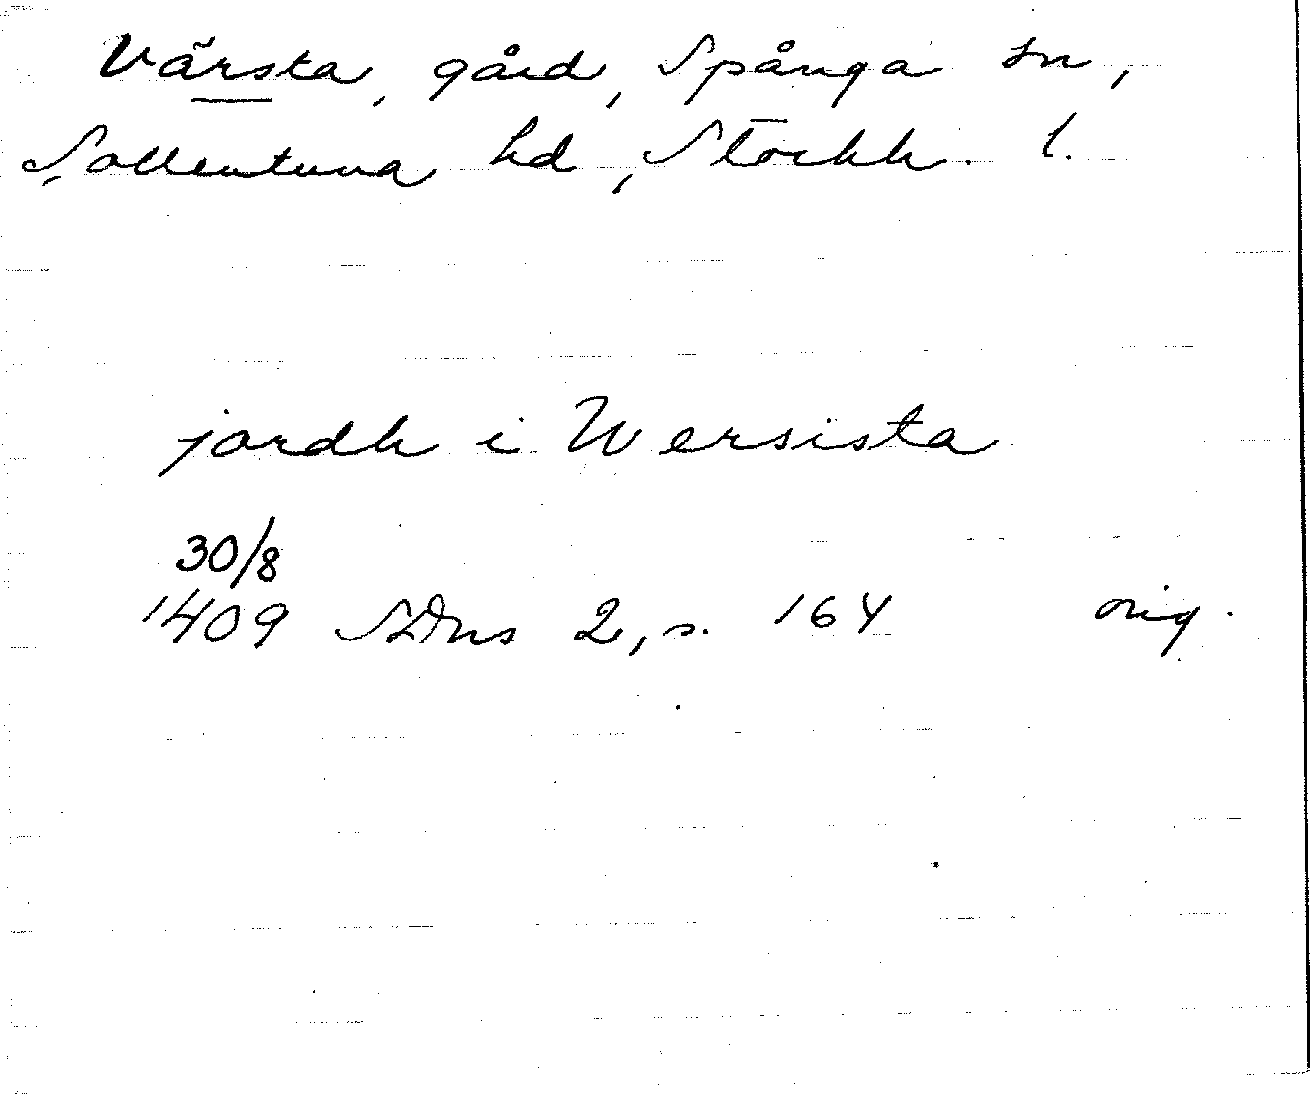 Värsta, gård, Spånga sn,
Sollentuna hd, Stockh. l.
jordh i Wersista
30/8
1409 SDns 2, s. 164 orig.